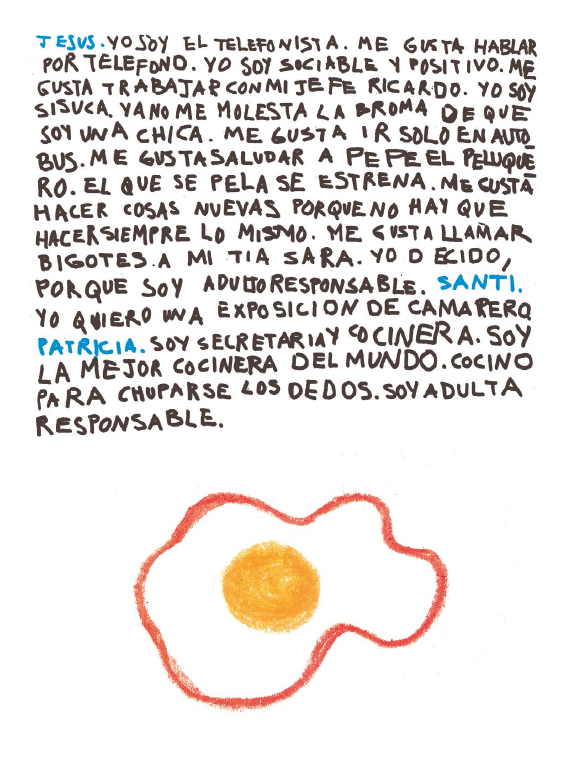 JESUS. YO SOY EL TELEFONISTA. ME GUSTA HABLAR
POR TELEFONO. YO SOY SOCIABLE Y POSITIVO. ME
GUSTA TRABAJAR CON MI JEFE RICARDO. YO SOY
SISUCA. YA NO ME MOLESTA LA BROMA DE QUE
SOY UNA CHICA. ME GUSTA IR SOLO EN AUTO
BUS. ME GUSTA SALUDAR A PEPE EL PELUQUE
RO. EL QUE SE PELA SE ESTRENA. ME GUSTA
HACER COSAS NUEVAS PORQUE NO HAY QUE
HACER SIEMPRE LO MISMO. ME GUSTA LLAMAR
BIGOTES A MI TIA SARA. YO DECIDO,
PORQUE SOY ADULTO RESPONSABLE. SANTI.
YO QUIERO UNA EXPOSICION DE CAMARERO
PATRICIA. SOY SECRETARIA Y COCINERA. SOY
LA MEJOR COCINERA DEL MUNDO. COCINO
PARA CHUPARSE LOS DEDOS. SOY ADULTA
RESPONSABLE.